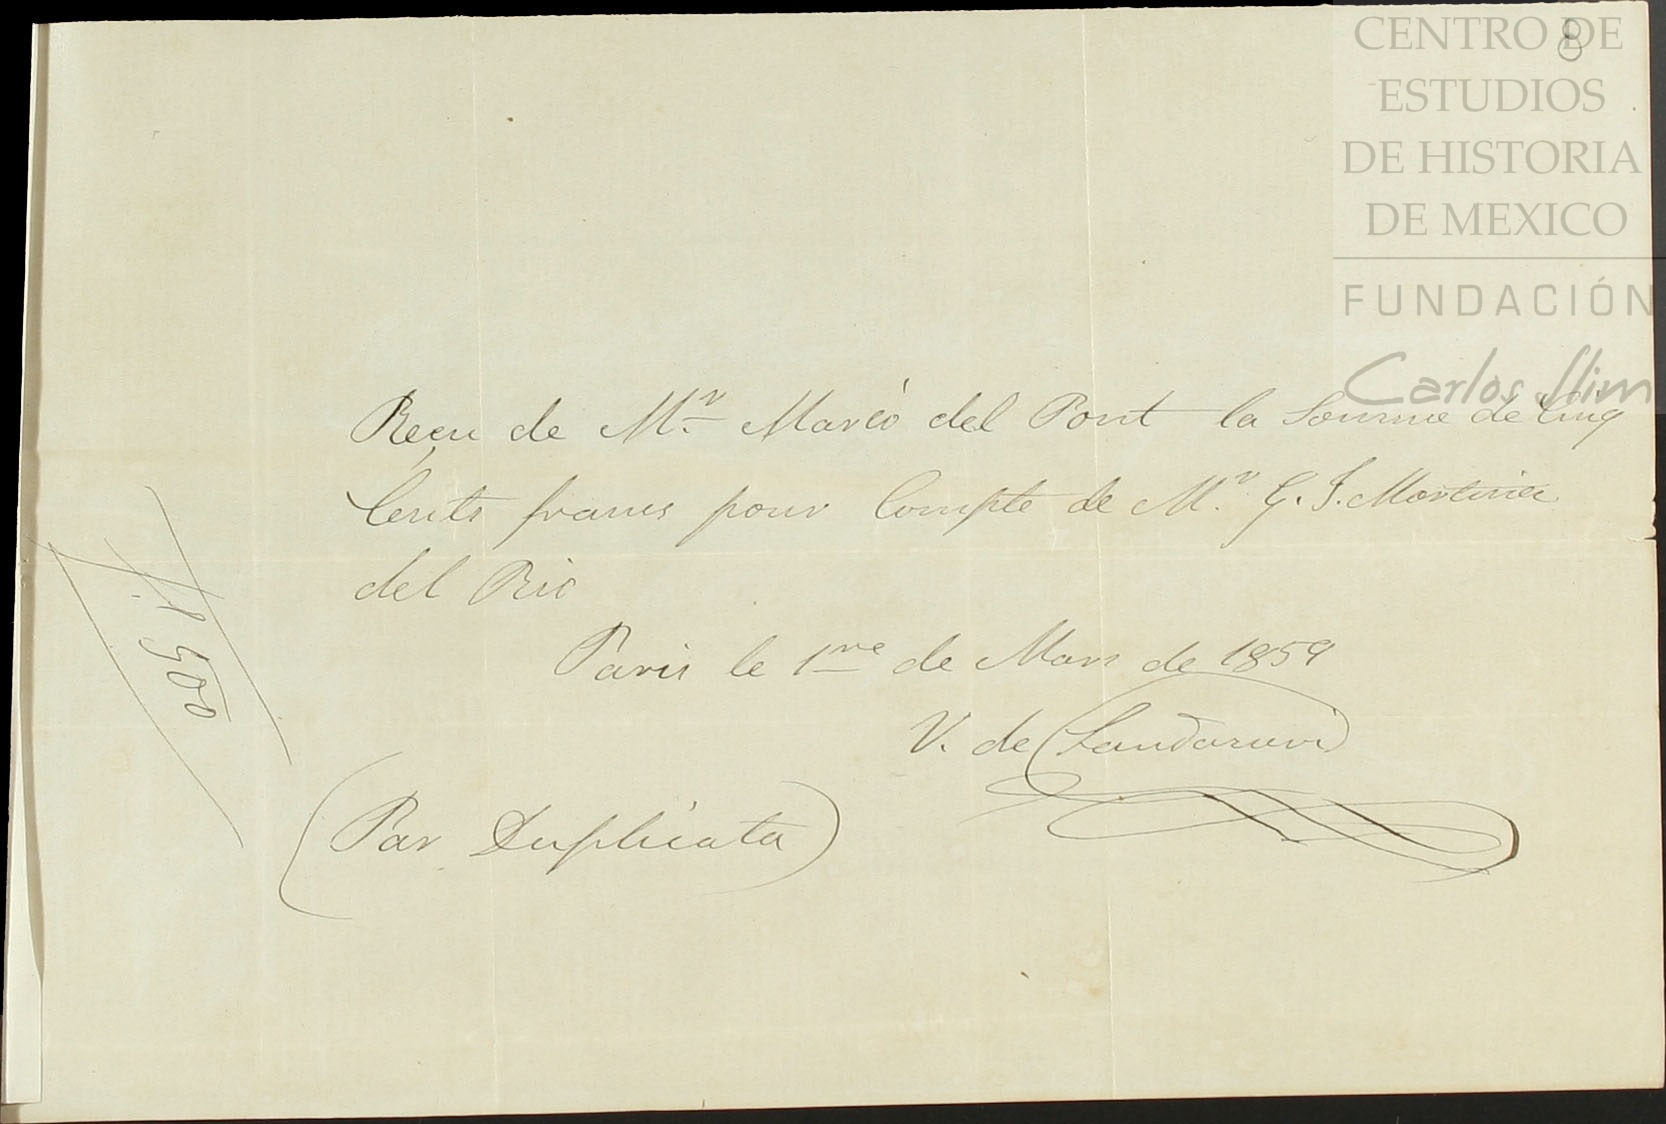 CENTRO DE
ESTUDIOS
DE HISTORIA
DE MEXICO
FUNDACIÓN
Carlos Slim
8
Reçu de Mr Marcó del Pont la Somme de Cinq
Cents francs pour Compte de Mr G. J. Martinez
del Rio
Paris le 1re de Mars de 1859
V. de Landaruni
(Par Duplicata)
f. 500